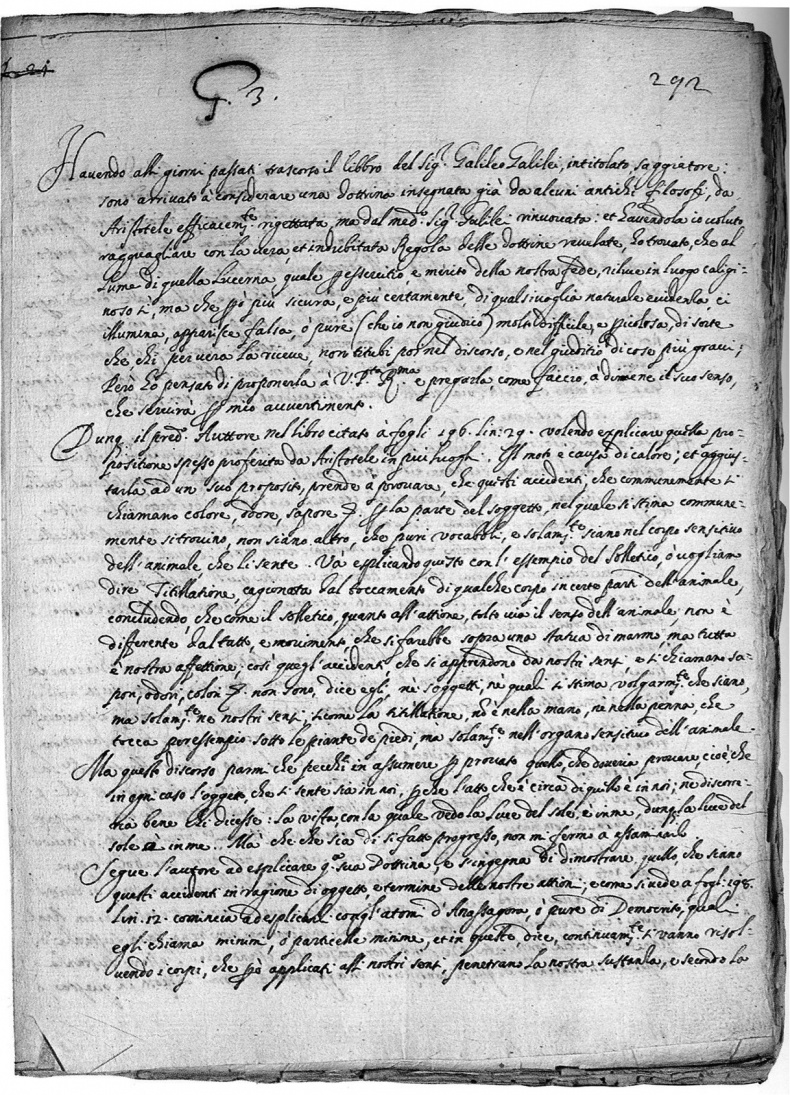 G. 3.
292
Havendo alli giorni passati trascorso il libbro del Sig.r Galileo Galilei, intitolato, saggiatore:
sono arrivato à considerare una dottrina insegnata già da alcuni antichi filosofi, da
Aristotele efficacem.te rigettata, ma dal med.o Sig.r Galilei rinuovata: et havendola io voluto
ragguagliare con la vera, et indubitata Regola delle dottrine revelate, ho trovato, che al
lume di quella Lucerna, quale p essercitio, e merito della nostra fede, riluce in luogo caligi-
noso ti, ma che pò più sicura, e più certamente, di qualsivoglia naturale evidenza, ci
illumina, apparisce falsa, ò pure (che io non giudico) molto difficile, e picolosa, di sorte
che, chi per vera la riceve, non titubi poi nel discorso, e nel giuditio di cose più gravi;
Però hò pensato di proponerla à V. P.tà R.ma e pregarla, come faccio, à dirmene il suo senso,
che servirà p mio avvertimento.
Dunq. il pred.o Auttore nel libro citato à fogli 196. lin: 29. volendo explicare quella pro-
positione spesso proferita da Aristotele in più luoghi. Il moto e causa di calore; et aggius-
tarla ad un suo proposito, prende à provare, che questi accidenti, che communemente si
chiamano colore, odore, sapore p la parte del soggetto, nel quale si stima commune-
mente si trovino, non siano altro, che puri vocaboli, e solam.te siano nel corpo sensitivo
dell'animale, che li sente. Và explicando questo con l'essempio del solletico, ò vogliam
dire Titillatione, cagionata dal toccamento di qualche corpo in certe parti dell'animale,
concludendo, che come il solletico, quanto all'attione, tolto via il senso dell'animale, non è
differente dal tatto, e movimento, che si farebbe sopra una statua di marmo, ma tutta
è nostra affettione; così quegl'accidenti che si apprendono da nostri sensi, e si chiamano sa-
pori, odori, colori non sono, dice egli, nè soggetti, nè quali si stima volgarm.te che siano,
ma solam.te ne nostri sensi; si come la titillatione, nò è nella mano, nè nella penna, che
tocca per essempio sotto le piante de piedi, ma solam.te nell'organo sensitivo dell'animale.
Ma questo discorso parmi che pecchi in assumere p provato quello, che doveria provare, cioè che
in ogni caso l'oggetto, che si sente sia in noi, pche l'atto che è circa di quello è in noi; ne discorre-
ria bene chi dicesse: la vista con la quale vedo la luce del sole, è in me, dunq. la luce del
sole è in me. Mà che che sia di sì fatto progresso, non mi fermo a essaminarlo.
Segue l'autore ad esplicare q.a sua Dottrina, e s'ingegna di dimostrare, quello che siano
questi accidenti in ragione di oggetto e termine delle nostre attioni; e come si vede a fogl: 198.
lin. 12. comincia ad esplicarli cogl'atomi d'Anassagora, ò pure di Democrito, quali
egli chiama minimi, ò particelle minime, et in queste dice, continuam.te si vanno risol-
vendo i corpi, che pò applicati alli nostri sensi, penetrano la nostra sustanza, e secondo la